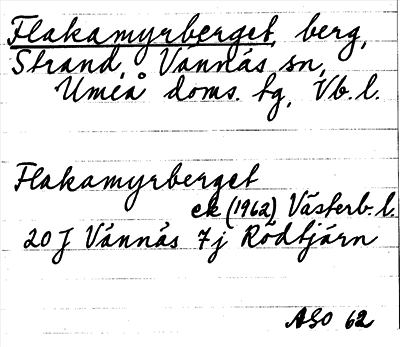 Flakamyrberget, berg,
Strand, Vännäs sn,
Umeå doms. tg, Vb. l.
Flakamyrberget
ek (1962) Västerb. l.
20 J Vännäs 7j Rödtjärn
ASO 62